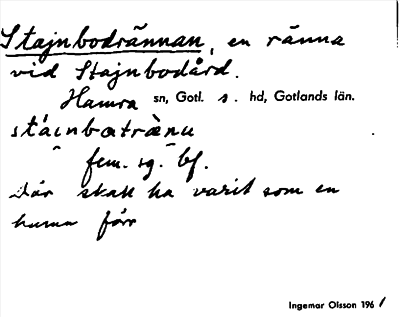 Stajnbodrännan, en ränna
vid Stajnbodård.
Hamra sn, Gotl. s. hd, Gotlands län.
stáinbatrànu
fem. sg. bf.
Där skall ha varit som en
hamn förr
Ingemar Olsson 1961